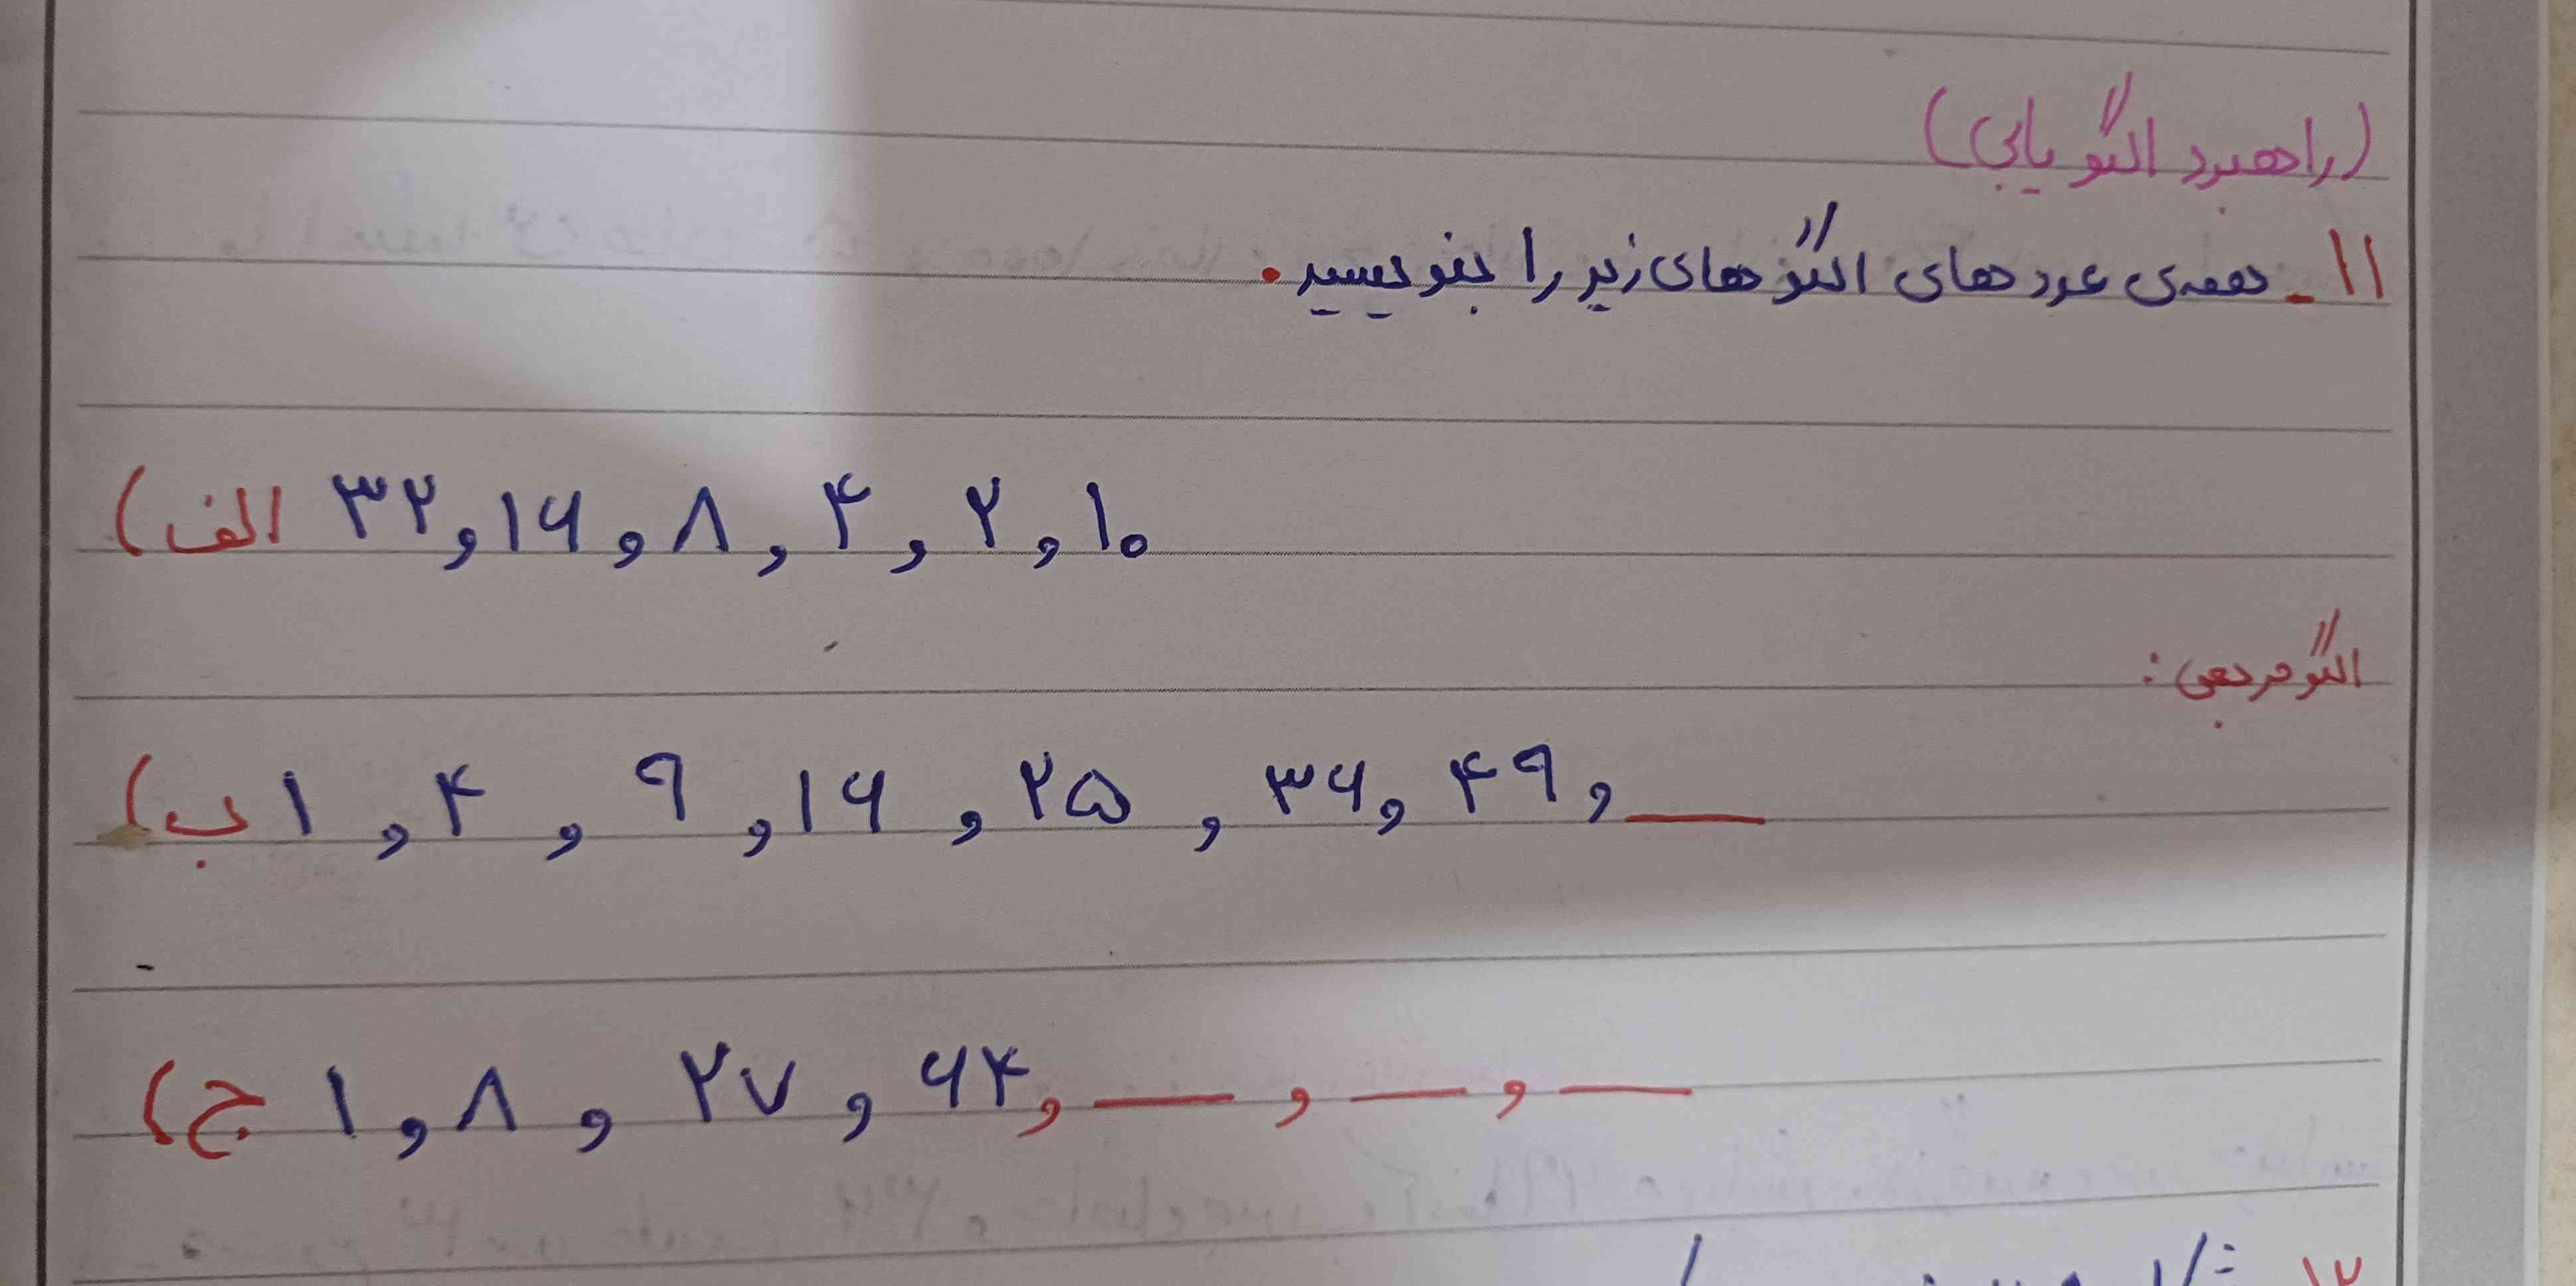 (راهبرد الگو یابی)
۱۱_ همه‌ی عددهای الگوهای زیر را بنویسید.
الف) ۳۲ , ۱۶ , ۸ , ۴ , ۲ , ۱۰
الگو مربعی:
ب) ۱ , ۴ , ۹ , ۱۶ , ۲۵ , ۳۶ , ۴۹ , __
ج) ۱ , ۸ , ۲۷ , ۶۴ , __ , __ , __
۱۲